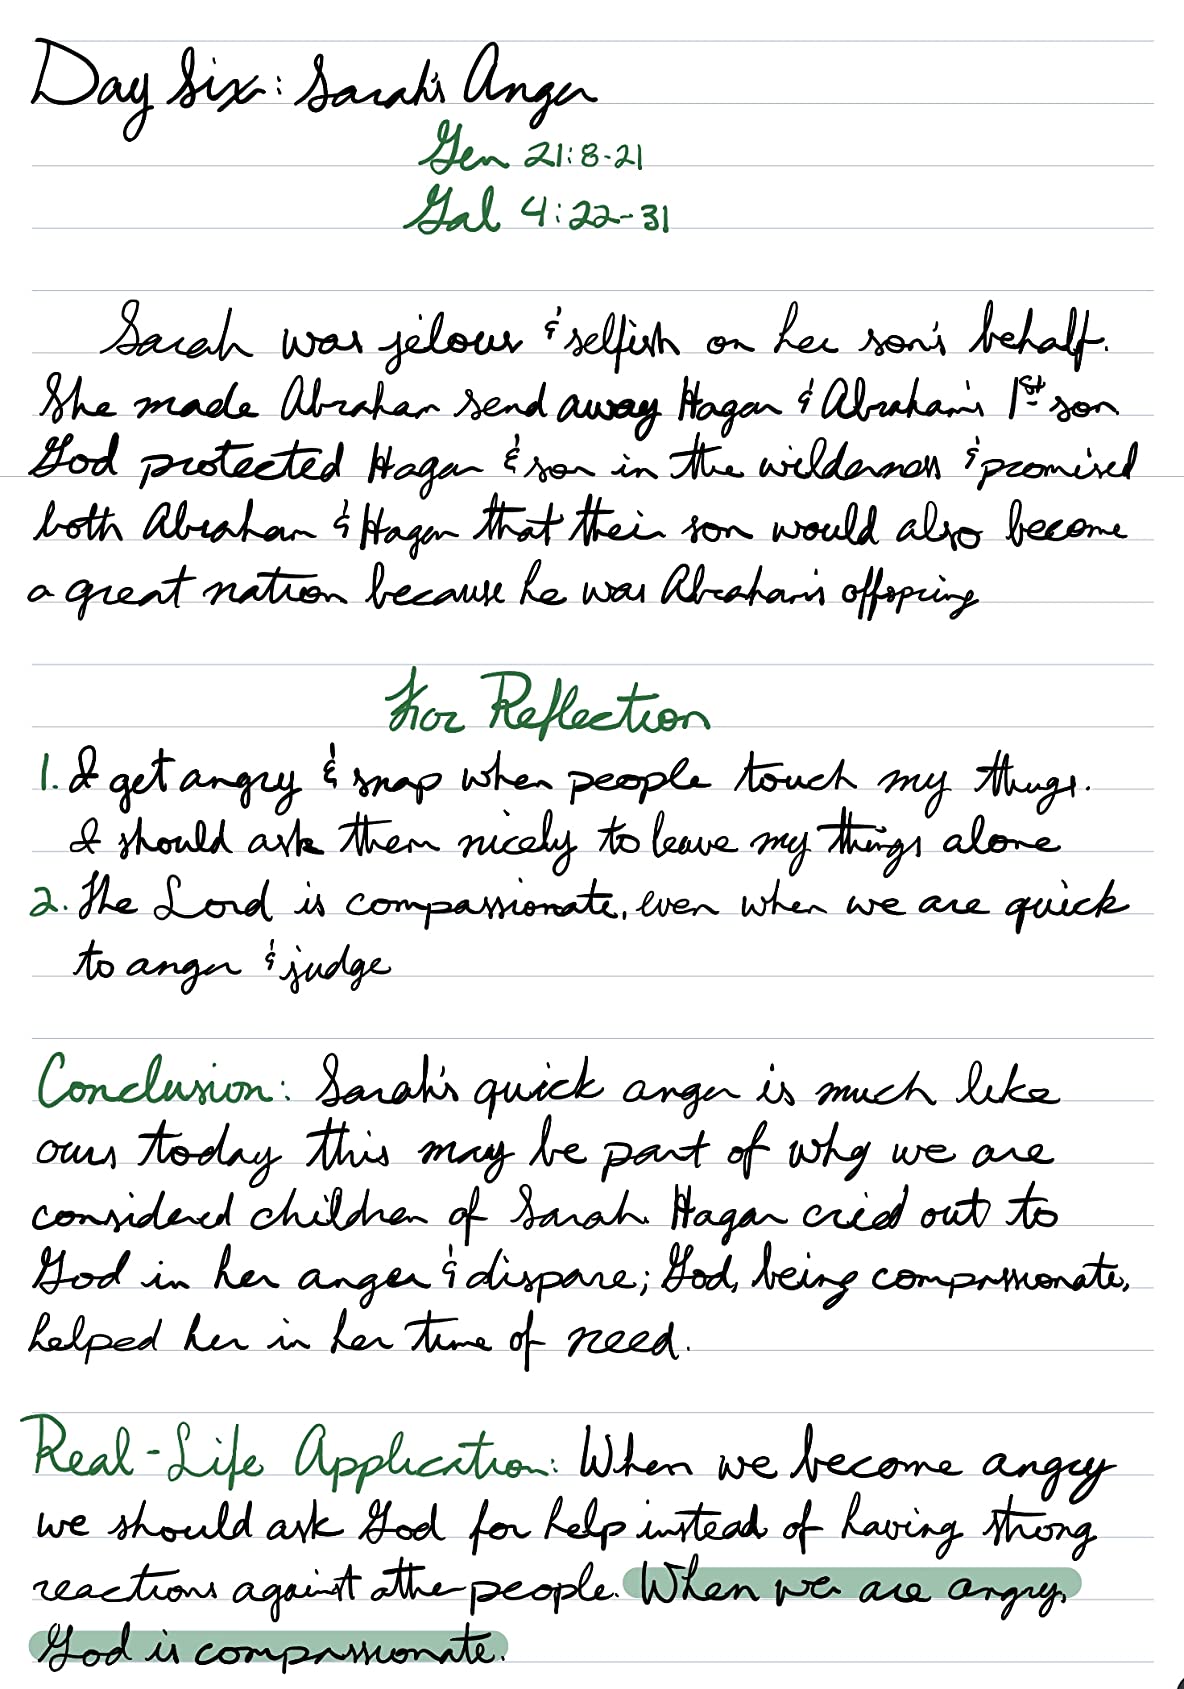 Day Six: Sarah's Anger
Gen 21:8-21
Gal 4:22-31
Sarah was jelous & selfish on her son's behalf.
She made Abraham send away Hagar & Abraham's 1st son
God protected Hagar & son in the wilderness & promised
both Abraham & Hagar that their son would also become
a great nation because he was Abraham's offspring
For Reflection
1. I get angry & snap when people touch my things.
I should ask them nicely to leave my things alone
2. The Lord is compassionate, even when we are quick
to anger & judge
Conclusion: Sarah's quick anger is much like
ours today this may be part of why we are
considered children of Sarah. Hagar cried out to
God in her anger & dispare; God, being compassionate,
helped her in her time of need.
Real-Life Application: When we become angry
we should ask God for help instead of having strong
reactions against other people. When we are angry,
God is compassionate.